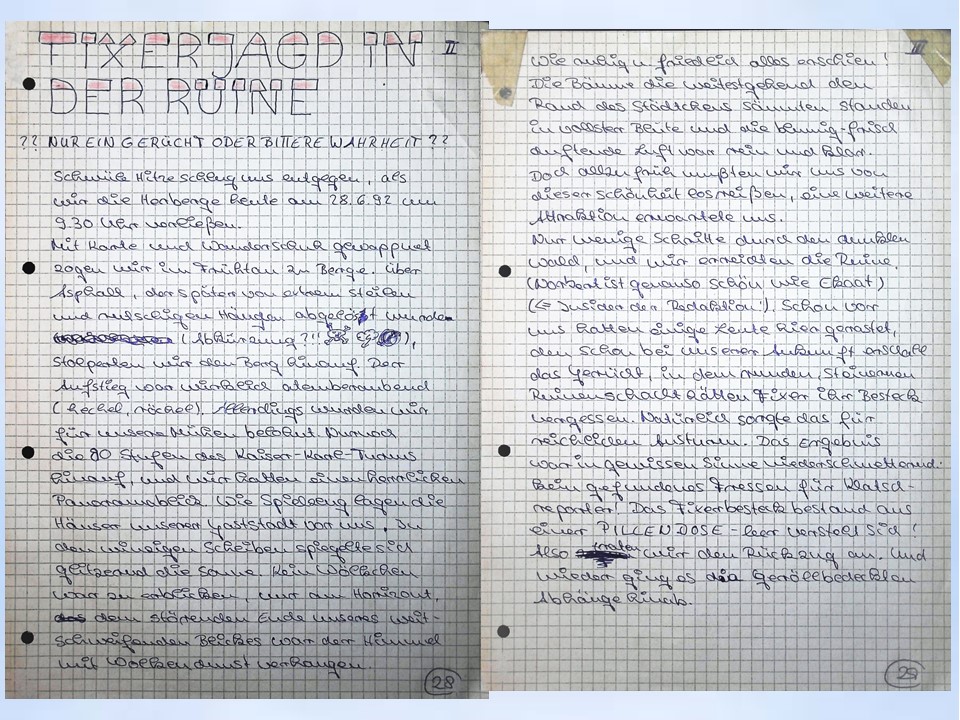 FIXERJAGD IN II
DER RUINE
?? NUR EIN GERÜCHT ODER BITTERE WAHRHEIT ??
Schwüle Hitze schlug uns entgegen, als
wir die Herberge heute am 28.6.92 um
9.30 Uhr verließen.
Mit Karte und Wanderschuh gewappnet
zogen wir im Frühtau zu Berge. Über
Asphalt, der später von extrem steilen
und rutschigen Hängen abgelöst wurde
(Abkürzung?!!),
stolperten wir den Berg hinauf. Der
Aufstieg war wirklich atemberaubend
(hechel, röchel). Allerdings wurden wir
für unsere Mühen belohnt. Nur noch
die 90 Stufen des Kaiser-Karls-Turms
hinauf, und wir hatten einen herrlichen
Panoramablick. Wie Spielzeug lagen die
Häuser unserer Gaststadt vor uns. In
den winzigen Scheiben spiegelte sich
glitzernd die Sonne. Kein Wölkchen
war zu erblicken, nur am Horizont,
dem störenden Ende unseres weit-
schweifenden Blickes war der Himmel
mit Wolkendunst verhangen.
28
III
Wie ruhig u. friedlich alles erschien!
Die Bäume die weitestgehend den
Rand des Städtchens säumten standen
in vollster Blüte und die blumig-frisch
duftende Luft war rein und klar.
Doch allzu früh mußten wir uns von
dieser Schönheit losreißen, eine weitere
Attraktion erwartete uns.
Nur wenige Schritte durch den dunklen
Wald, und wir erreichten die Ruine.
(Norbert ist genauso schön wie Eknat)
(⇐ Insider der Redaktion!). Schon vor
uns hatten einige Leute hier gerastet,
denn schon bei unserer Ankunft erschallte
das Gerücht, in dem runden, steinernen
Ruinenschacht hätten Fixer ihr Besteck
vergessen. Natürlich sorgte das für
reichlichen Ansturm. Das Ergebnis
war in gewissen Sinne niederschmetternd:
Kein gefundenes Fressen für Klatsch-
reporter! Das Fixerbesteck bestand aus
einer PILLENDOSE - leer versteht sich!
Also traten wir den Rückzug an. Und
wieder ging es die Geröllbedeckten
Abhänge hinab.
29